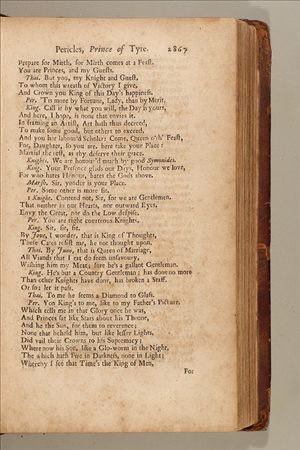 Pericles, Prince of Tyre. 2867
Prepare for Mirth, for Mirth comes at a Feast.
You are Princes, and my Guests.
Thai. But you, my Knight and Guest,
To whom this wreath of Victory I give,
And Crown you King of this Day's happiness.
Per. 'Tis more by Fortune, Lady, than by Merit.
King. Call it by what you will, the Day is yours,
And here, I hope, is none that envies it.
In framing an Artist, Art hath thus decreed,
To make some good, but others to exceed,
And you her labour'd Scholar: Come, Queen o'th' Feast,
For, Daughter, so you are, here take your Place:
Martial the rest, as they deserve their grace.
Knights. We are honour'd much by good Symonides.
King. Your Presence glads our Days, Honour we love,
For who hates Honour, hates the Gods above.
Marsh. Sir, yonder is your Place.
Per. Some other is more fit.
1 Knight. Contend not, Sir, for we are Gentlemen,
That neither in our Hearts, nor outward Eyes,
Envy the Great, nor do the Low despise.
Per. You are right courteous Knights.
King. Sit, sit, sit.
By Jove, I wonder, that is King of Thoughts,
These Cates resist me, he not thought upon.
Thai. By Juno, that is Queen of Marriage,
All Viands that I eat do seem unsavoury,
Wishing him my Meat; sure he's a gallant Gentleman.
King. He's but a Country Gentleman; has done no more
Than other Knights have done, has broken a Staff,
Or so; let it pass.
Thai. To me he seems a Diamond to Glass.
Per. Yon King's to me, like to my Father's Picture,
Which tells me in that Glory once he was,
And Princes sat like Stars about his Throne,
And he the Sun, for them to reverence;
None that beheld him, but like lesser Lights,
Did vail their Crowns to his Supremacy;
Where now his Son, like a Glo-worm in the Night,
The which hath Fire in Darkness, none in Light;
Whereby I see that Time's the King of Men,
For